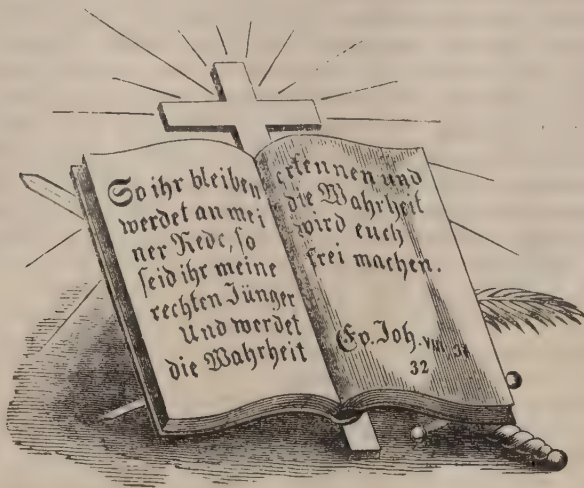 So ihr bleiben
werdet an mei
ner Rede, so
seid ihr meine
rechten Jünger
Und werdet
die Wahrheit
erkennen und
die Wahrheit
wird euch
frei machen.
Ev. Joh. VIII. 31
32